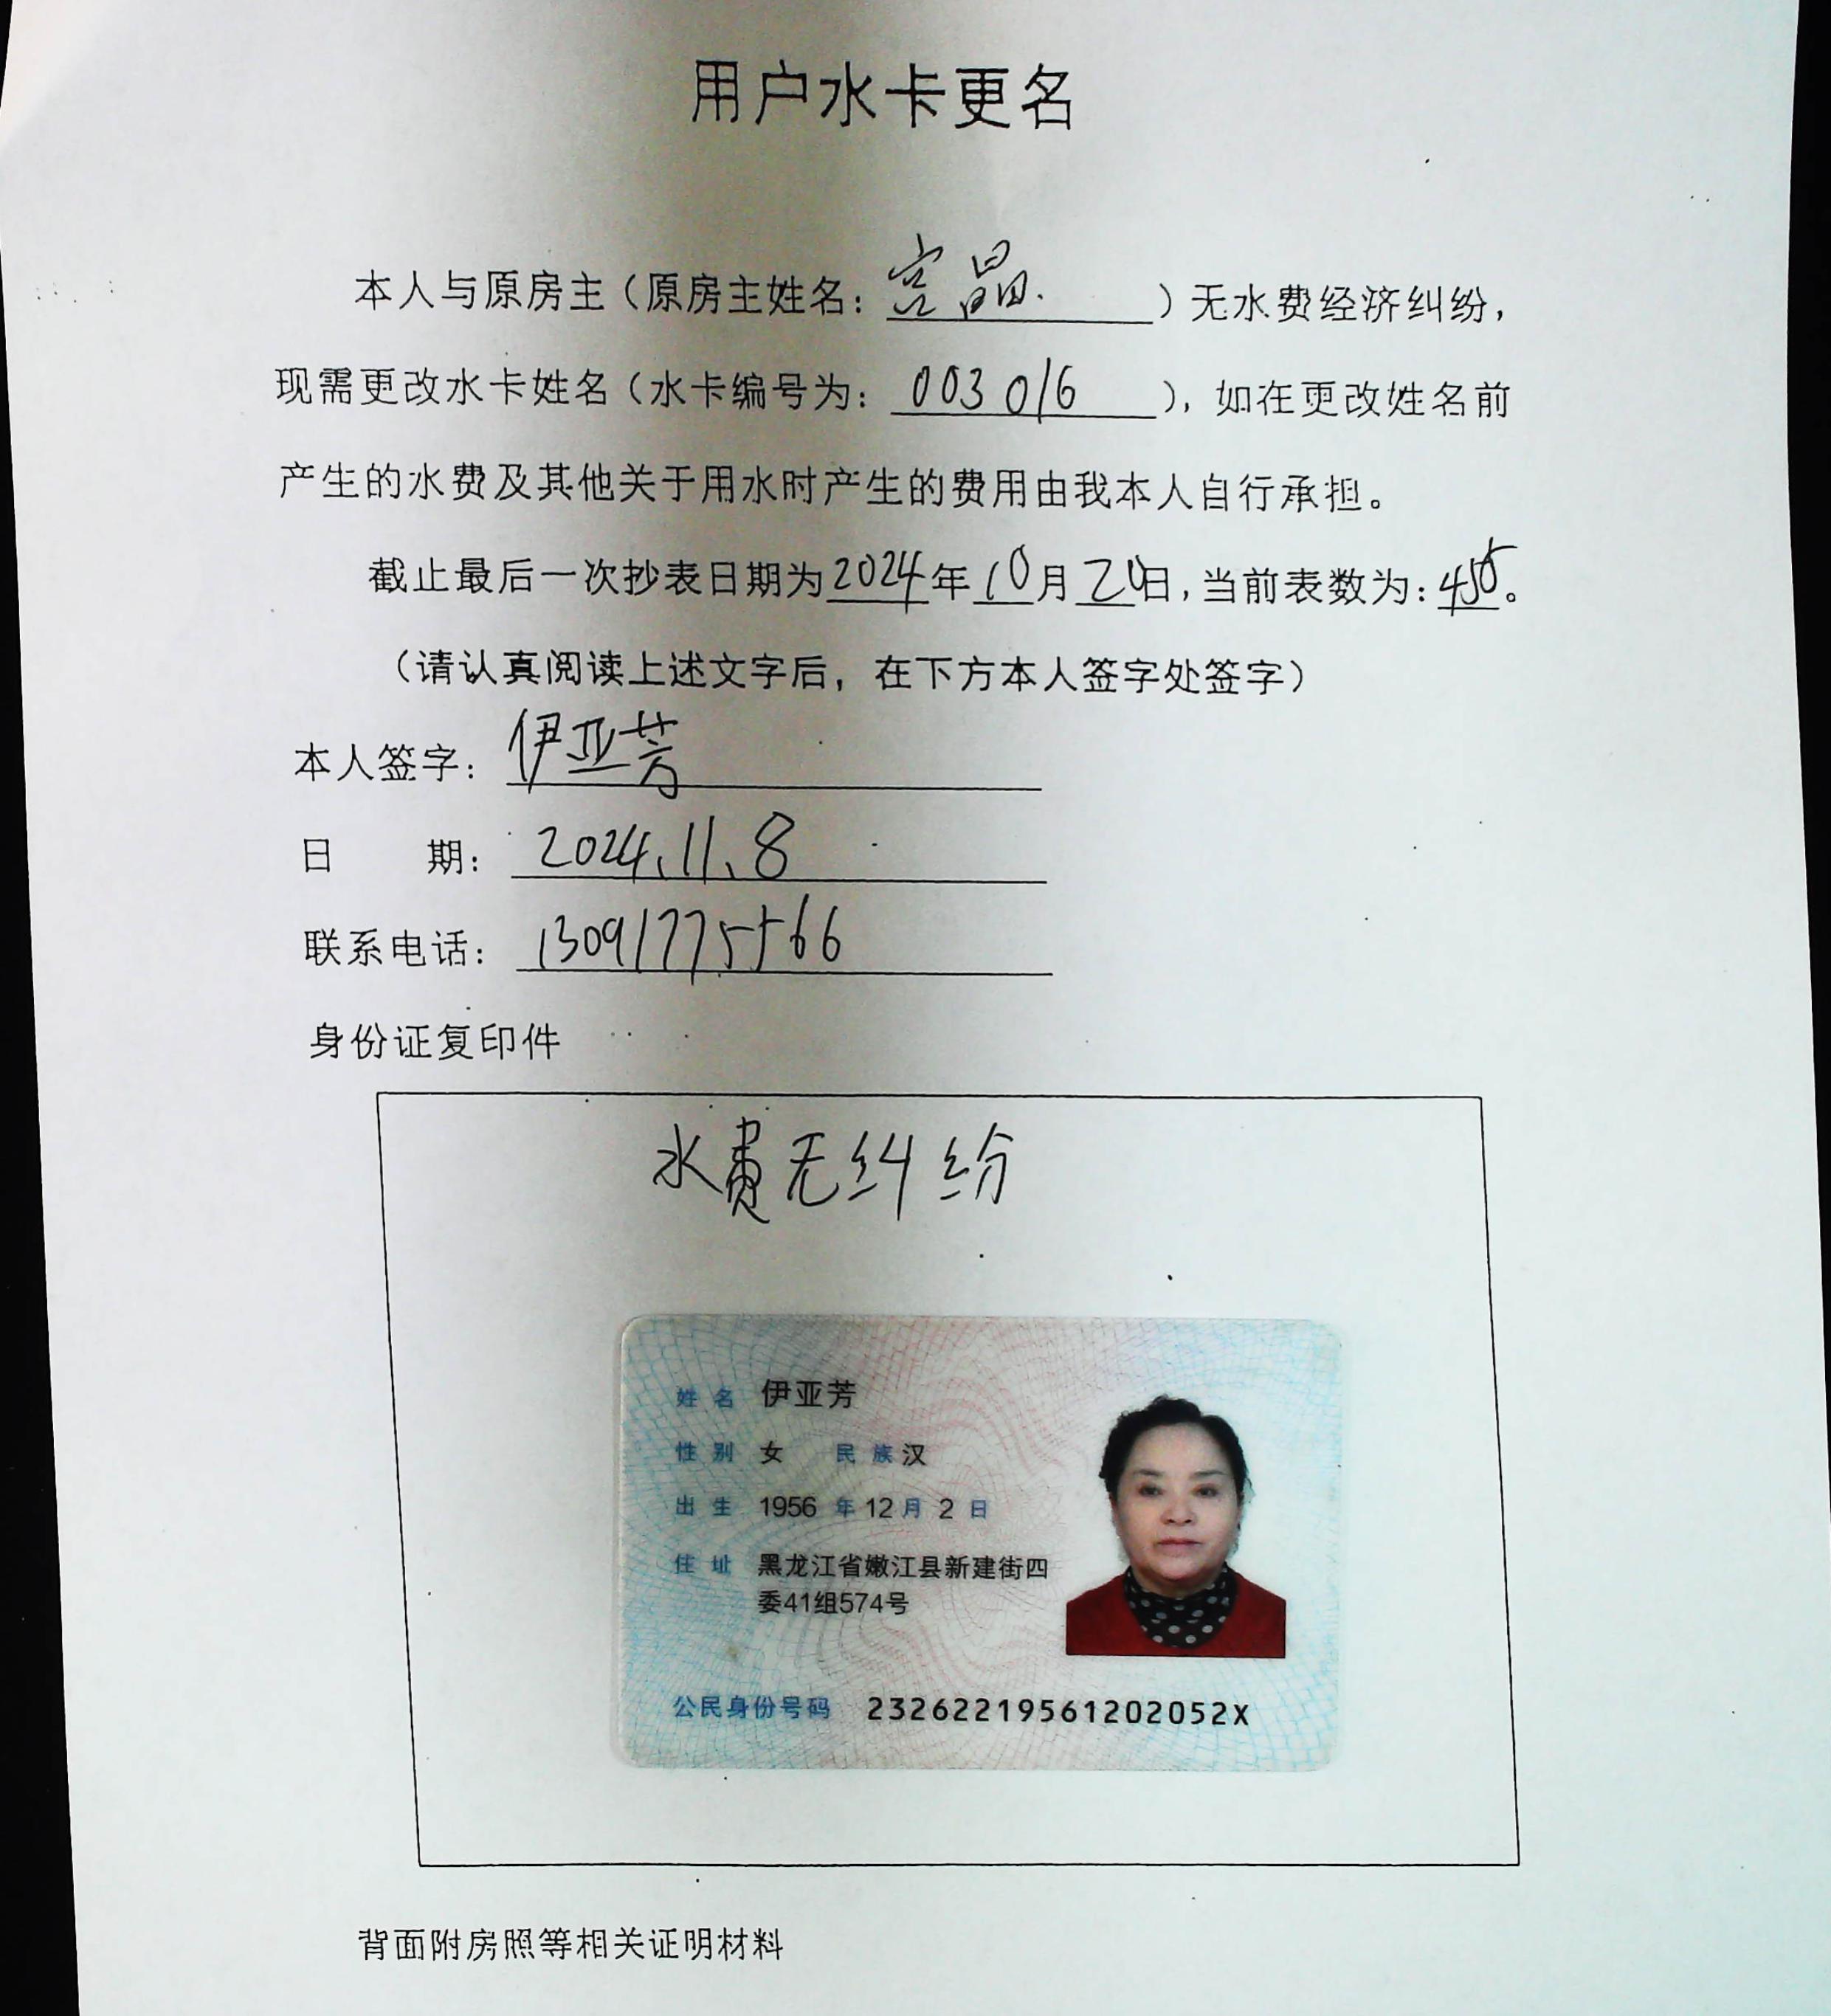 用户水卡更名
本人与原房主（原房主姓名：宫晶）无水费经济纠纷，
现需更改水卡姓名（水卡编号为：003016），如在更改姓名前
产生的水费及其他关于用水时产生的费用由我本人自行承担。
截止最后一次抄表日期为2024年10月20日，当前表数为：455。
（请认真阅读上述文字后，在下方本人签字处签字）
本人签字：伊亚芳
日 期：2024.11.8
联系电话：13091775566
身份证复印件
水费无纠纷
姓名 伊亚芳
性别 女 民族 汉
出生 1956 年 12 月 2 日
住址 黑龙江省嫩江县新建街四
委41组574号
公民身份号码 23262219561202052X
背面附房照等相关证明材料